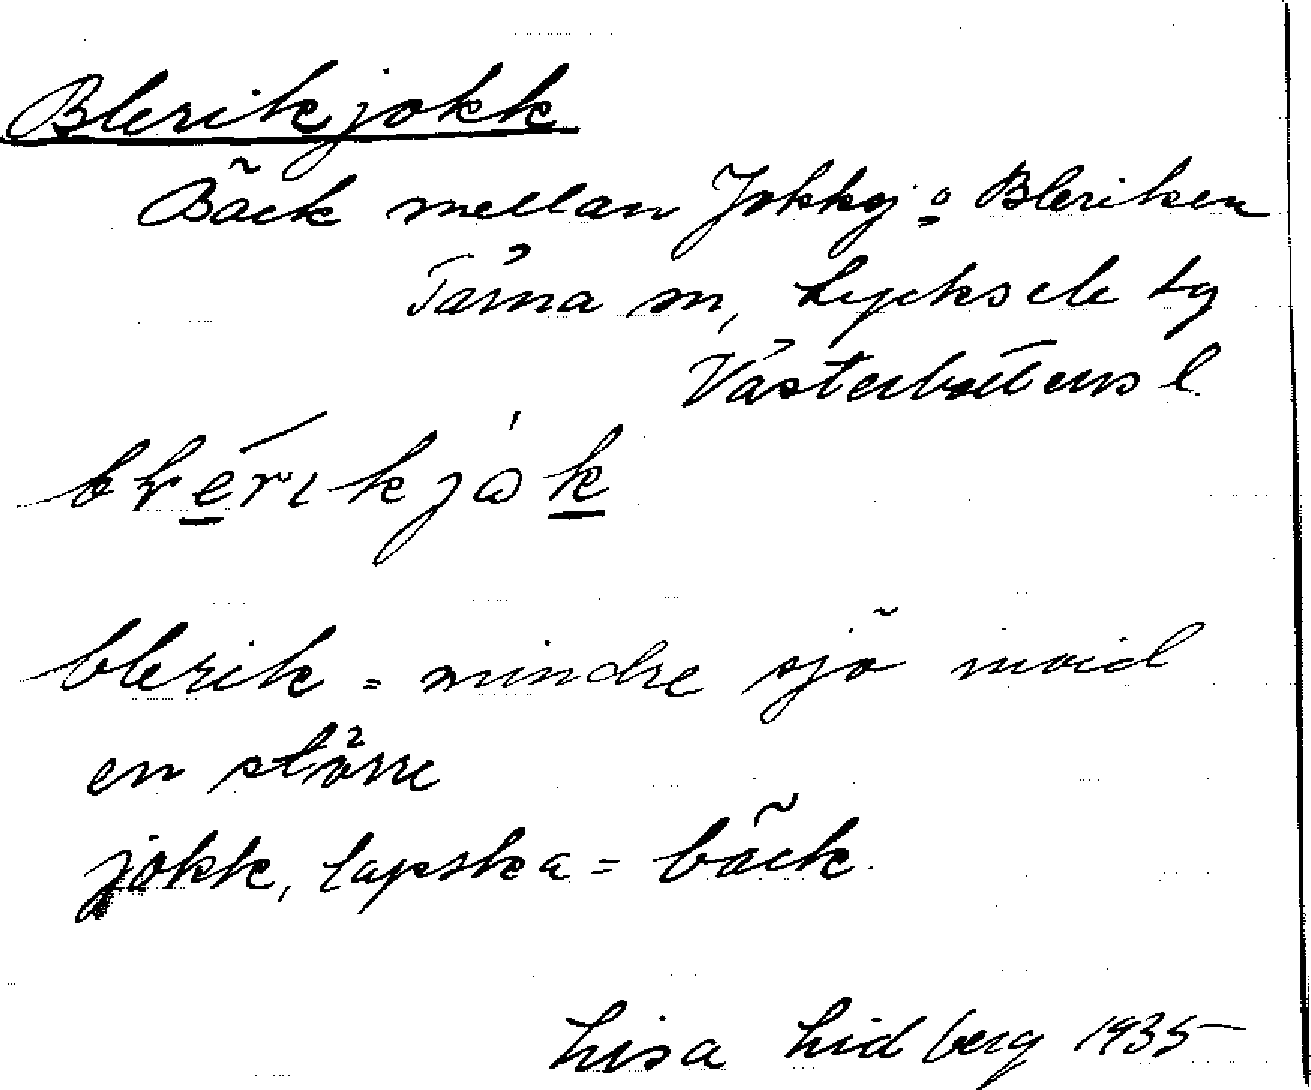 Blerikjokk
Bäck mellan Jokksj o Bleriken
Tärna sn, Lycksele tg
Västerbottens l
blerik = mindre sjö invid
en större
jokk, lapska = bäck.
Lisa Lidberg 1935